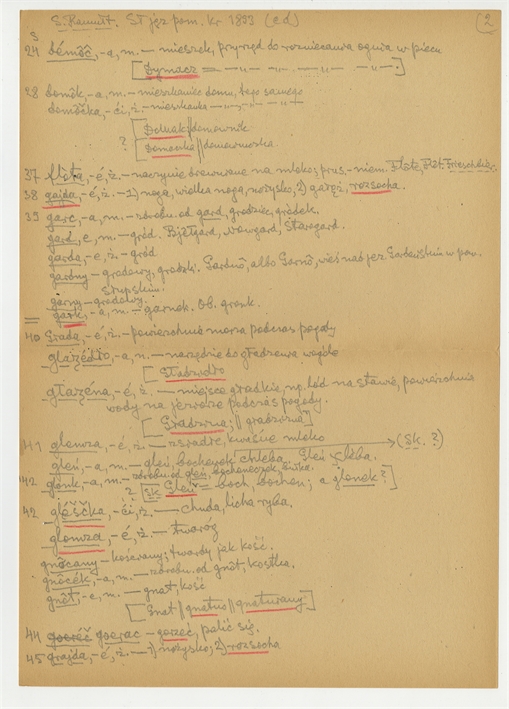 S. Ramułt. St jęz pom. kr 1893 (ed) (2
S
24 démôč, -a, m. — mieszek, przyrząd do rozniecania ognia w piecu
[Dymacz = — „ — „ — „ — „ — .]
28 domôk, -a, m. — mieszkaniec domu, tego samego
domôčka, -ći, ż. — mieszkanka — „ — „ — „ —
? [Domak || domownik
[Domaczka || domowniczka.
37 fleta, -é, ż. — naczynie drewniane na mleko; prus.-niem. Flete, Flöt.
38 gajda, -é, ż. — 1) noga, wielka noga, nożysko, 2) gałęź, rozsocha.
39 garc, -a, m. — zdrobn. od gard, grodziec, gródek.
gard, e, m. — gród. Bjélgard, Novgard, Stargard.
garda, -é, ż. — gród
gardny — grodowy, grodzki. Gardnô, albo Garnô, wieś nad jez. Gardeńskim w pow. słupskim.
garny — grodowy.
gark, -a, m. — garnek. Ob. gronk.
40 -é, ż. — powierzchnia morza podczas pogody
glazédło, -a, n. — narzędzie do gładzenia wogóle
[Gładzidło
głazéna, -é, ż. — miejsce gładkie, np. lód na stawie, powierzchnia
wody na jeziorze podczas pogody.
[Gładzizna; || gradzizna]
41 glemza, -é, ż. — zsiadłe, kwaśne mleko → (Sk. ?)
gleń, -a, m. — gleń, bochenek chleba. Gleń chleba.
42 glônk, -a, m. — zdrobn. od gleń, bocheneczek, bułka.
? [Sk. Gleń — boch, bochen; a glonek?]
42 glëščka, -ći, ż. — chuda, licha ryba.
glomzd, -é, ż. — twaróg
gnôcany — kościany; twardy jak kość.
gnôcék, -a, m. — zdrobn. od gnôt, kostka.
gnôt, -e, m. — gnat, kość
[Gnat || gnatno || gnaturany]
44 gorec — gorzeć, palić się.
45 grajda, -é, ż. — 1) nożysko, 2) rozsocha